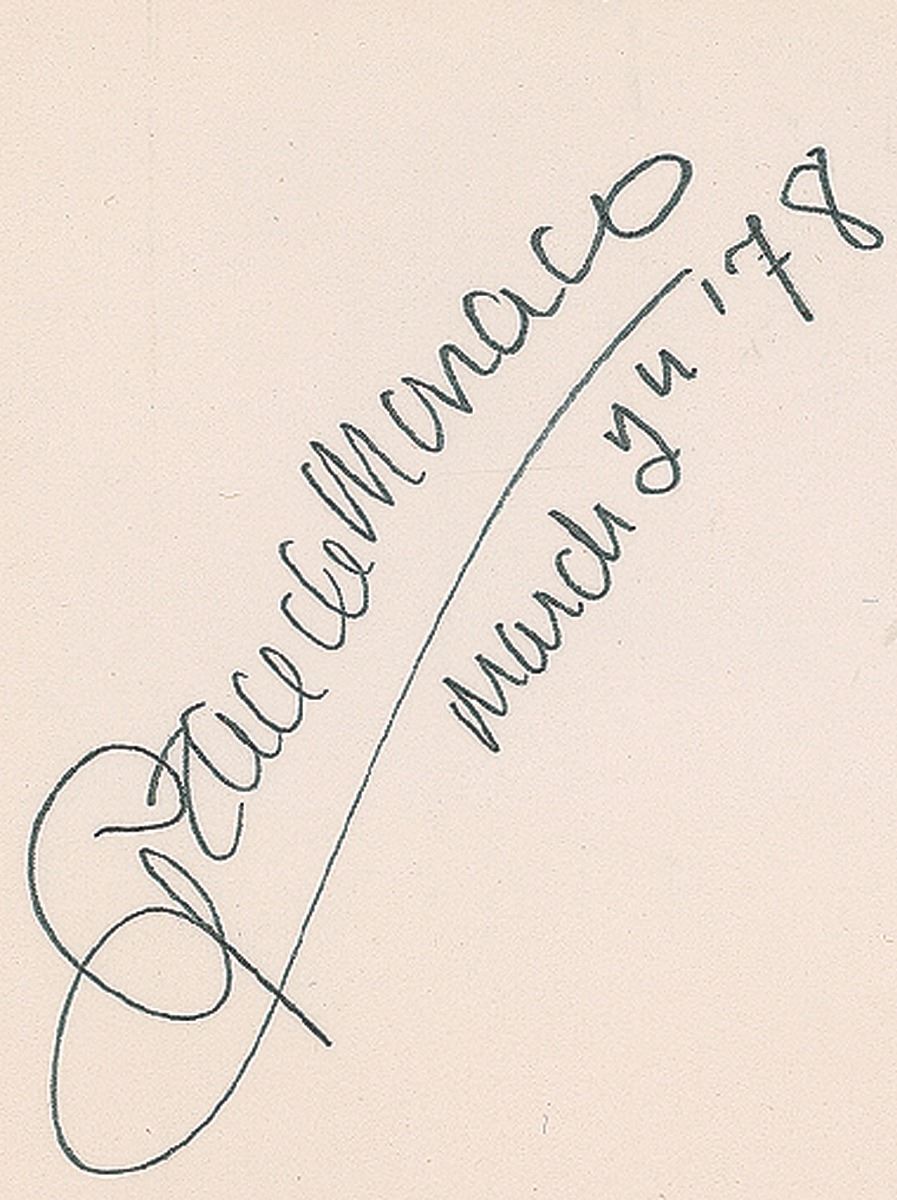 Grace de Monaco
March 24 '78